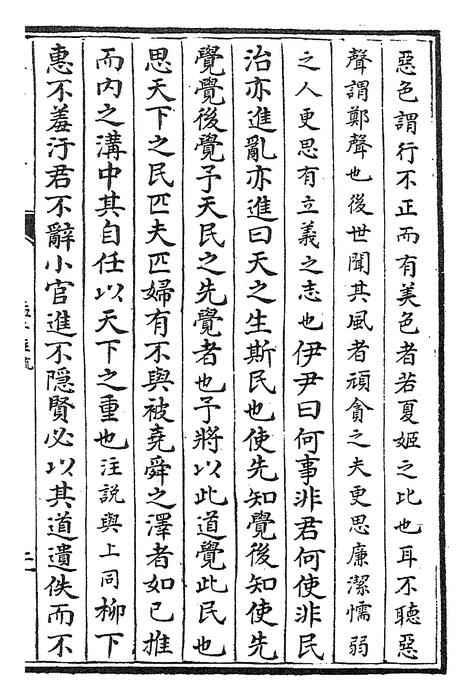 惡色謂行不正而有美色者若夏姬之比也耳不聽惡
聲謂鄭聲也後世聞其風者頑貪之夫更思廉潔懦弱
之人更思有立義之志也伊尹曰何事非君何使非民
治亦進亂亦進曰天之生斯民也使先知覺後知使先
覺覺後覺予天民之先覺者也予將以此道覺此民也
思天下之民匹夫匹婦有不與被堯舜之澤者如己推
而內之溝中其自任以天下之重也注說與上同柳下
惠不羞汙君不辭小官進不隱賢必以其道遺佚而不